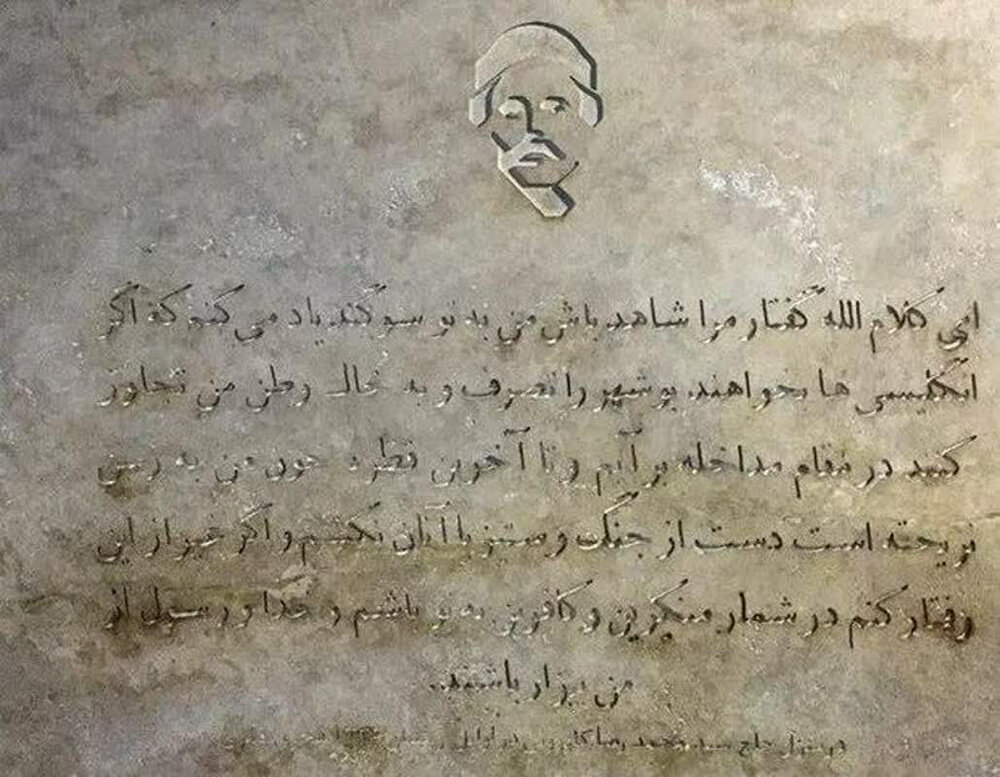 ای کلام الله گفتار مرا شاهد باش من به تو سوگند یاد می کنم که اگر
انگلیسی ها بخواهند بوشهر را تصرف و به خاک وطن من تجاوز
کنند در مقام مداخله بر آیم و تا آخرین قطره خون من به زمین
نریخته است دست از جنگ و ستیز با آنان نکشم و اگر غیر از این
رفتار کنم در شمار منکرین و کافرین به تو باشم و خدا و رسول از
من بیزار باشند..
در منزل حاج سید محمد رضا کازرونی در اوایل